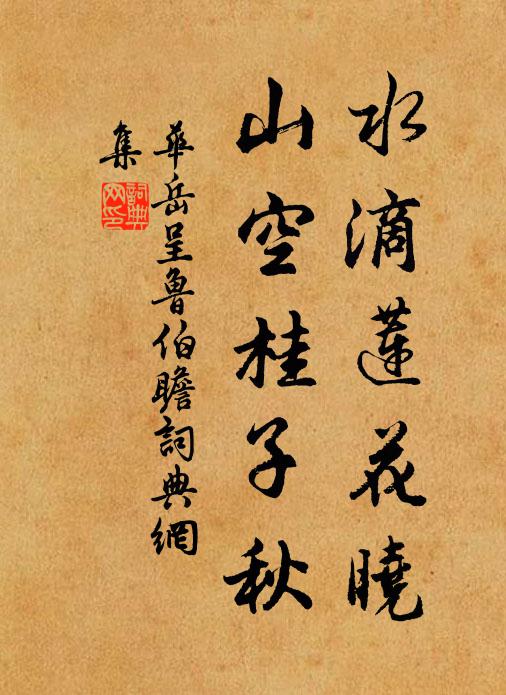 水滴蓮花曉
山空桂子秋
華岳呈魯伯瞻詞典網
集
詞典網印